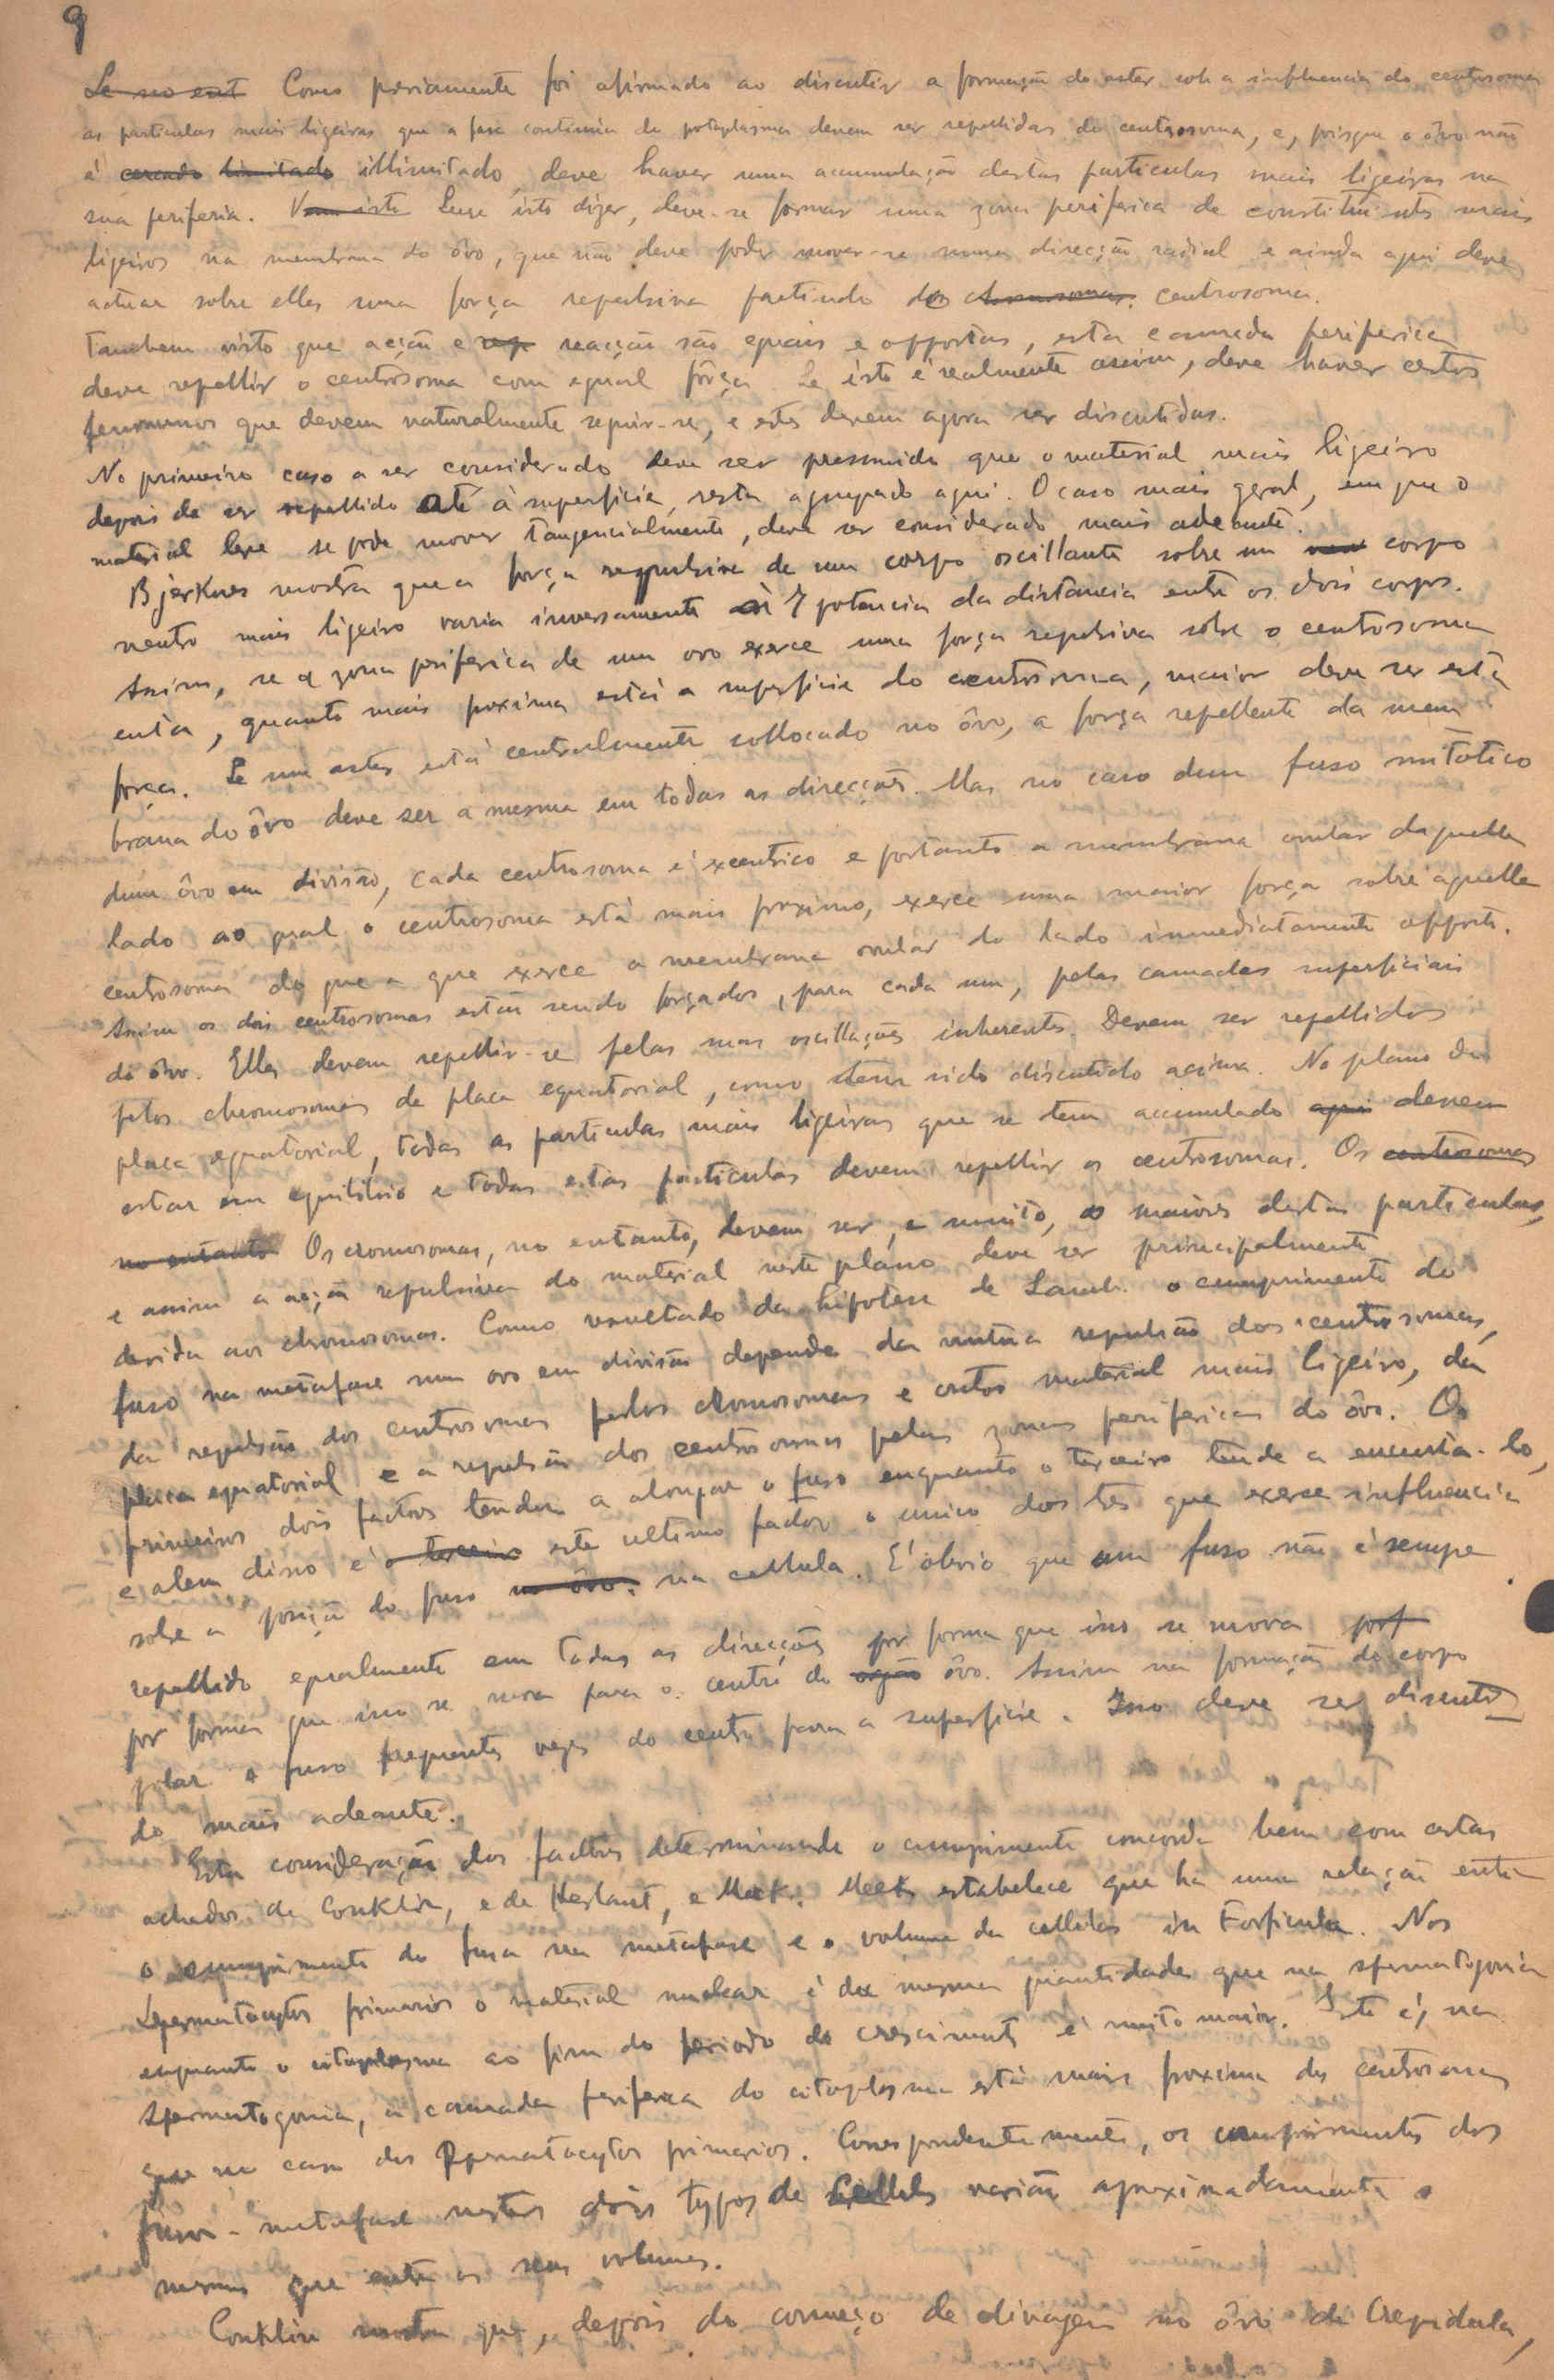 9
Se no ent Como préviamente foi afirmado ao discutir a formação do aster sob a influencia do centrosoma
as particulas mais ligeiras que a fase continua do protoplasma devem ser repellidas do centrosoma, e, poisque o ôvo não
é cercado limitado illimitado, deve haver uma accumulação destas particulas mais ligeiras na
sua periferia. Vem isto Quer isto dizer, deve-se formar uma zona periferica de constituintes mais
ligeiros na membrana do ôvo, que não deve poder mover-se numa direcção radial e ainda aqui deve
actuar sobre elles uma força repulsiva partindo do chromosomas. centrosoma.
Tambem visto que acção e rep reacção são eguais e oppostas, esta camada periferica
deve repellir o centrosoma com egual fôrça. Se isto é realmente assim, deve haver certos
fenomenos que devem naturalmente seguir-se, e estes devem agora ser discutidos.
No primeiro caso a ser considerado deve ser presumido que o material mais ligeiro
depois de ser repellido até à superficie, resta agrupado aqui. O caso mais geral, em que o
material leve se pode mover tangencialmente, deve ser considerado mais adeante.
Bjerknes mostra que a força repulsiva de um corpo oscillante sobre um corpo
neutro mais ligeiro varia inversamente à 7 potencia da distancia entre os dois corpos.
Assim, se a zona periferica de um ovo exerce uma força repulsiva sobre o centrosoma
então, quanto mais proxima está a superficie do centrosoma, maior deve ser esta
força. Se um aster está centralmente collocado no ôvo, a força repellente da mem
brana do ôvo deve ser a mesma em todas as direcções. Mas no caso dum fuso mitotico
dum ôvo em divisão, cada centrosoma é excentrico e portanto a membrana ovular daquelle
lado ao qual o centrosoma está mais proximo, exerce uma maior força sobre aquelle
centrosoma do que a que exerce a membrana ovular do lado immediatamente opposto.
Assim os dois centrosomas estão sendo forçados, para cada um, pelas camadas superficiais
do ôvo. Elles devem repellir-se pelas suas oscillações inherentes. Devem ser repellidos
pelos chromosomas da placa equatorial, como tem sido discutido acima. No plano da
placa equatorial, todas as particulas mais ligeiras que se tem accumulado aqui devem
estar em equilibrio e todas estas particulas devem repellir os centrosomas. Os centrosomas
no entanto Os cromosomas, no entanto, devem ser, e muito, as maiores destas particulas,
e assim a acção repulsiva do material neste plano deve ser principalmente
devida aos chromosomas. Como resultado da hipotese de Lamb. o cumprimento do
fuso na metafase num ovo em divisão depende da mutua repulsão dos centrosomas,
da repulsão dos centrosomas pelos chromosomas e outro material mais ligeiro, da
placa equatorial e a repulsão dos centrosomas pelas zonas perifericas do ôvo. Os
primeiros dois factores tendem a alongar o fuso enquanto o terceiro tende a encurta-lo,
e alem disso é o terceiro este ultimo factor o unico dos tres que exerce influencia
sobre a posição do fuso no ôvo. na cellula. É obvio que um fuso não é sempre
repellido egualmente em todas as direcções por forma que isso se mova porf
por forma que isso se mova para o centro do orgão ôvo. Assim na formação do corpo
polar o fuso frequentes vezes do centro para a superficie. Isso deve ser discuti
do mais adeante.
Esta consideração dos factores determinando o cumprimento concorda bem com certas
achados de Conklin, e de Herlant, e Meek. Meek estabelece que ha uma relação entre
o cumprimento do fuso na metafase e o volume da cellulas in Forficula. Nos
Spermatocytos primarios o material nuclear é da mesma quantidade que na spermatogonia
enquanto o citoplasma ao fim do periodo de crescimento é muito maior. Isto é, na
spermatogonia, a camada periferica do citoplasma está mais proxima dos centrosomas
que no caso dos spermatocytos primarios. Correspondentemente, os cumprimentos dos
fusos-metafase nestes dois typos de Cellulas variam aproximadamente o
mesmo que entre os seus volumes.
Conklin mostra que, depois do começo de clivagem no ôvo de Crepidula,